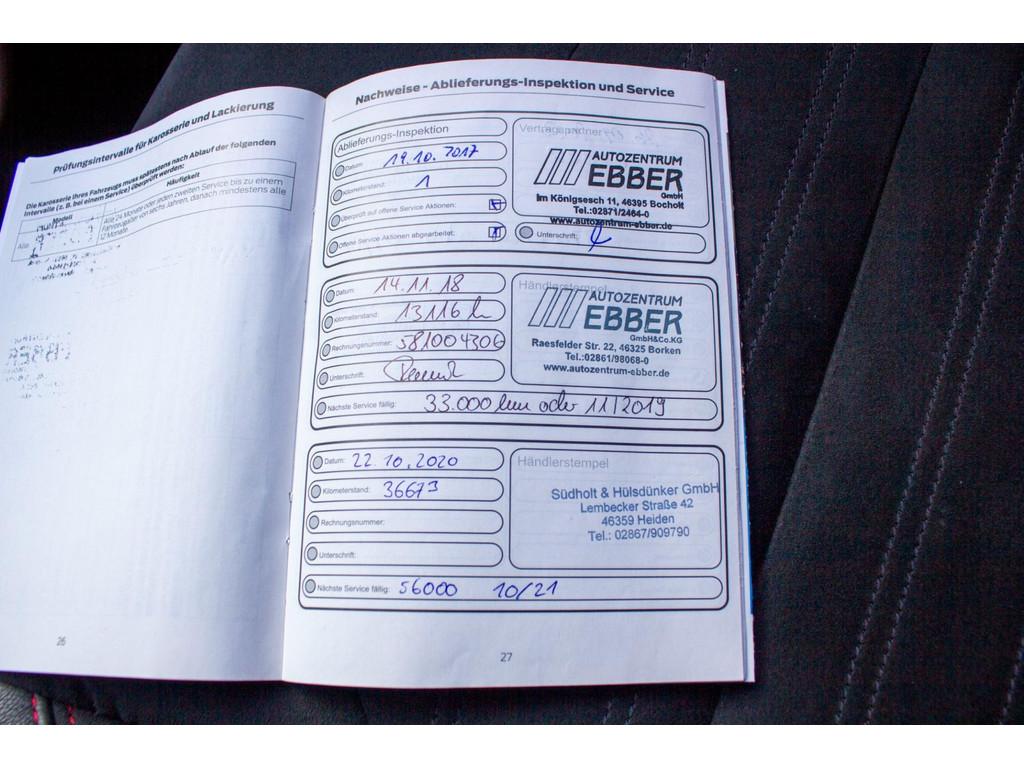 Prüfungsintervalle für Karosserie und Lackierung
Die Karosserie Ihres Fahrzeugs muss spätestens nach Ablauf der folgenden
Intervalle (z. B. bei einem Service) überprüft werden:
Modell
Häufigkeit
Alle
Alle 24 Monate oder jeden zweiten Service bis zu einem
Fahrzeugalter von sechs Jahren, danach mindestens alle
12 Monate.
26
Nachweise - Ablieferungs-Inspektion und Service
Ablieferungs-Inspektion
Datum: 19.10.2017
Kilometerstand: 1
Überprüft auf offene Service Aktionen:
Offene Service Aktionen abgearbeitet:
Vertragspartner
AUTOZENTRUM
EBBER
GmbH
Im Königsesch 11, 46395 Bocholt
Tel.:02871/2464-0
www.autozentrum-ebber.de
Unterschrift:
Datum: 14.11.18
Kilometerstand: 13116 km
Rechnungsnummer: 581004306
Unterschrift:
Nächste Service fällig: 33.000 km oder 11/2019
Händlerstempel
AUTOZENTRUM
EBBER
GmbH&Co.KG
Raesfelder Str. 22, 46325 Borken
Tel.:02861/98068-0
www.autozentrum-ebber.de
Datum: 22.10.2020
Kilometerstand: 36673
Rechnungsnummer:
Unterschrift:
Nächste Service fällig: 56000 10/21
Händlerstempel
Südholt & Hülsdünker GmbH
Lembecker Straße 42
46359 Heiden
Tel.: 02867/909790
27